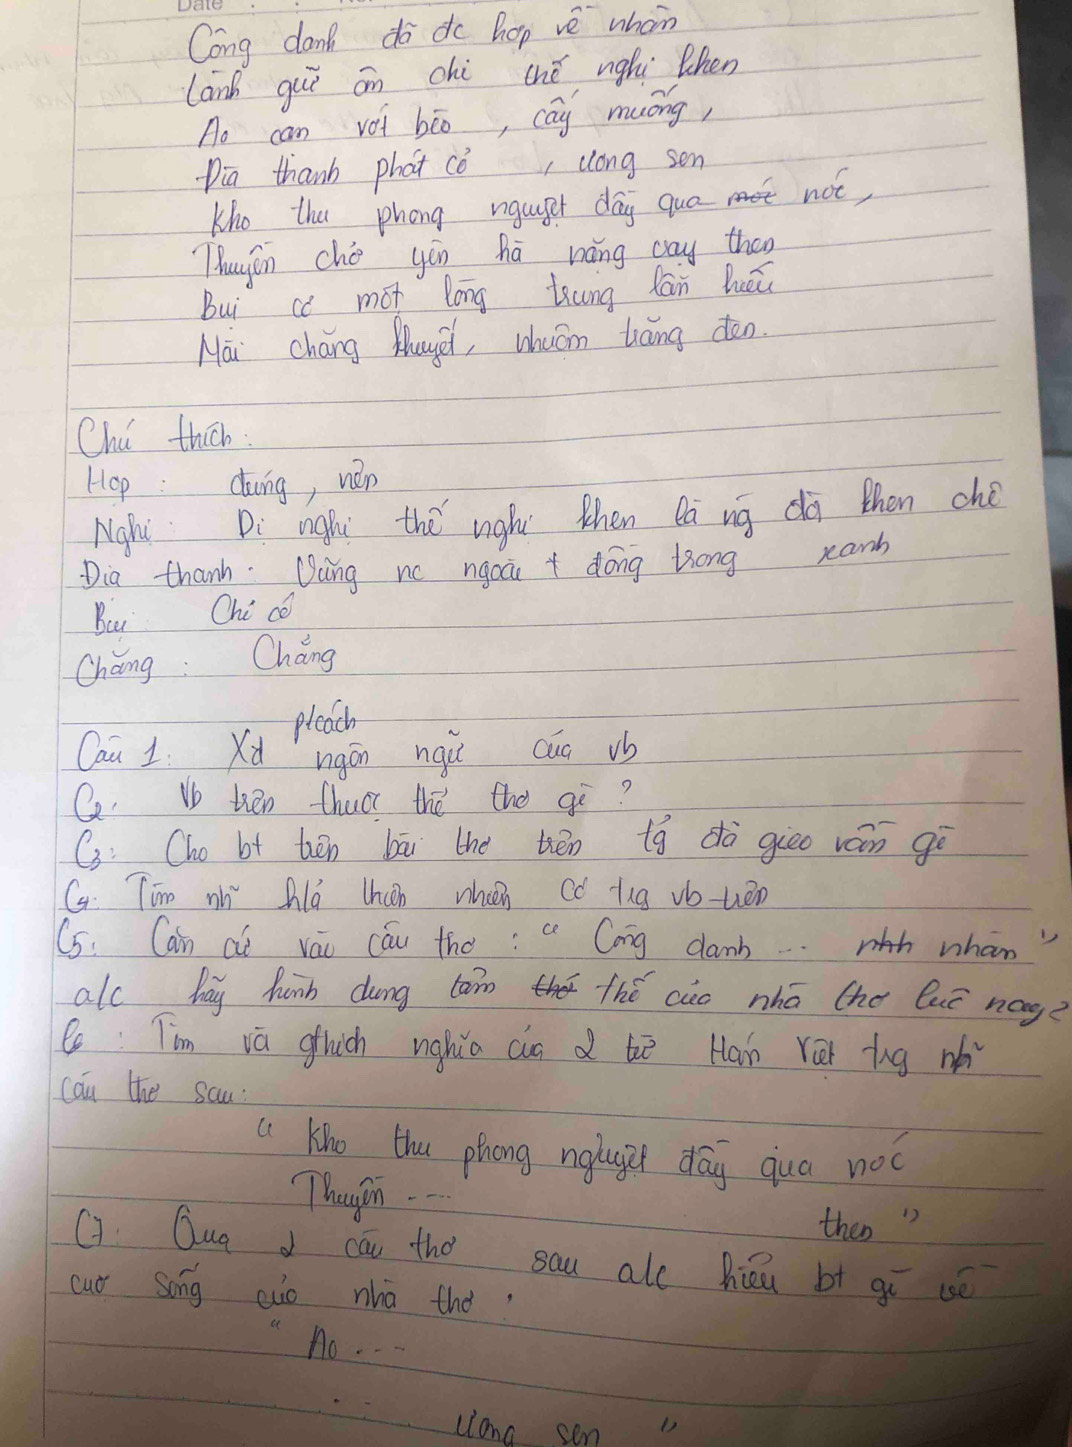 Date
Công danh đã đc hợp về nhàn
Lành giữ âu chi thế nghị khen
Ao cạn vớt bèo, cấy muống,
Đìa thanh phát cỏ, ương sen
Kho thu phong nguyệt đầy qua nóc,
Thuyền chở yên hà nặng vạy then
Bui có một lòng trung lẫn hiếu
Mài chăng khuyết, nhuộm chăng đen.
Chú thích:
Hợp: đúng, nên
Nghị: Dị nghị thế nghị khen là ng đời khen chê
Đìa thanh: Vũng nc ngoài đồng trong xanh
Bui: Chỉ có
Chăng: Chẳng
Câu 1: Xđ p/cách ngôn ngữ của vb
C2: Vb trên thuộc thể thơ gì?
C3: Cho bt trên bài thơ trên tg đã gieo vần gì
C4: Tìm nh~ h/a thiên nhiên có trg vb trên
C5: Căn cứ vào câu thơ: "Công danh ... nhàn"
a/c hãy hình dung tâm thế của nhà thơ lúc này?
C6: Tìm và gthích nghĩa của 2 từ Hán Việt trg nh~
câu thơ sau:
"Kho thu phong nguyệt đầy qua nóc
Thuyền ....
then"
C7: Qua 2 câu thơ sau a/c hiểu bt gì về
cuộc sống của nhà thơ:
"Ao ...
ương sen"